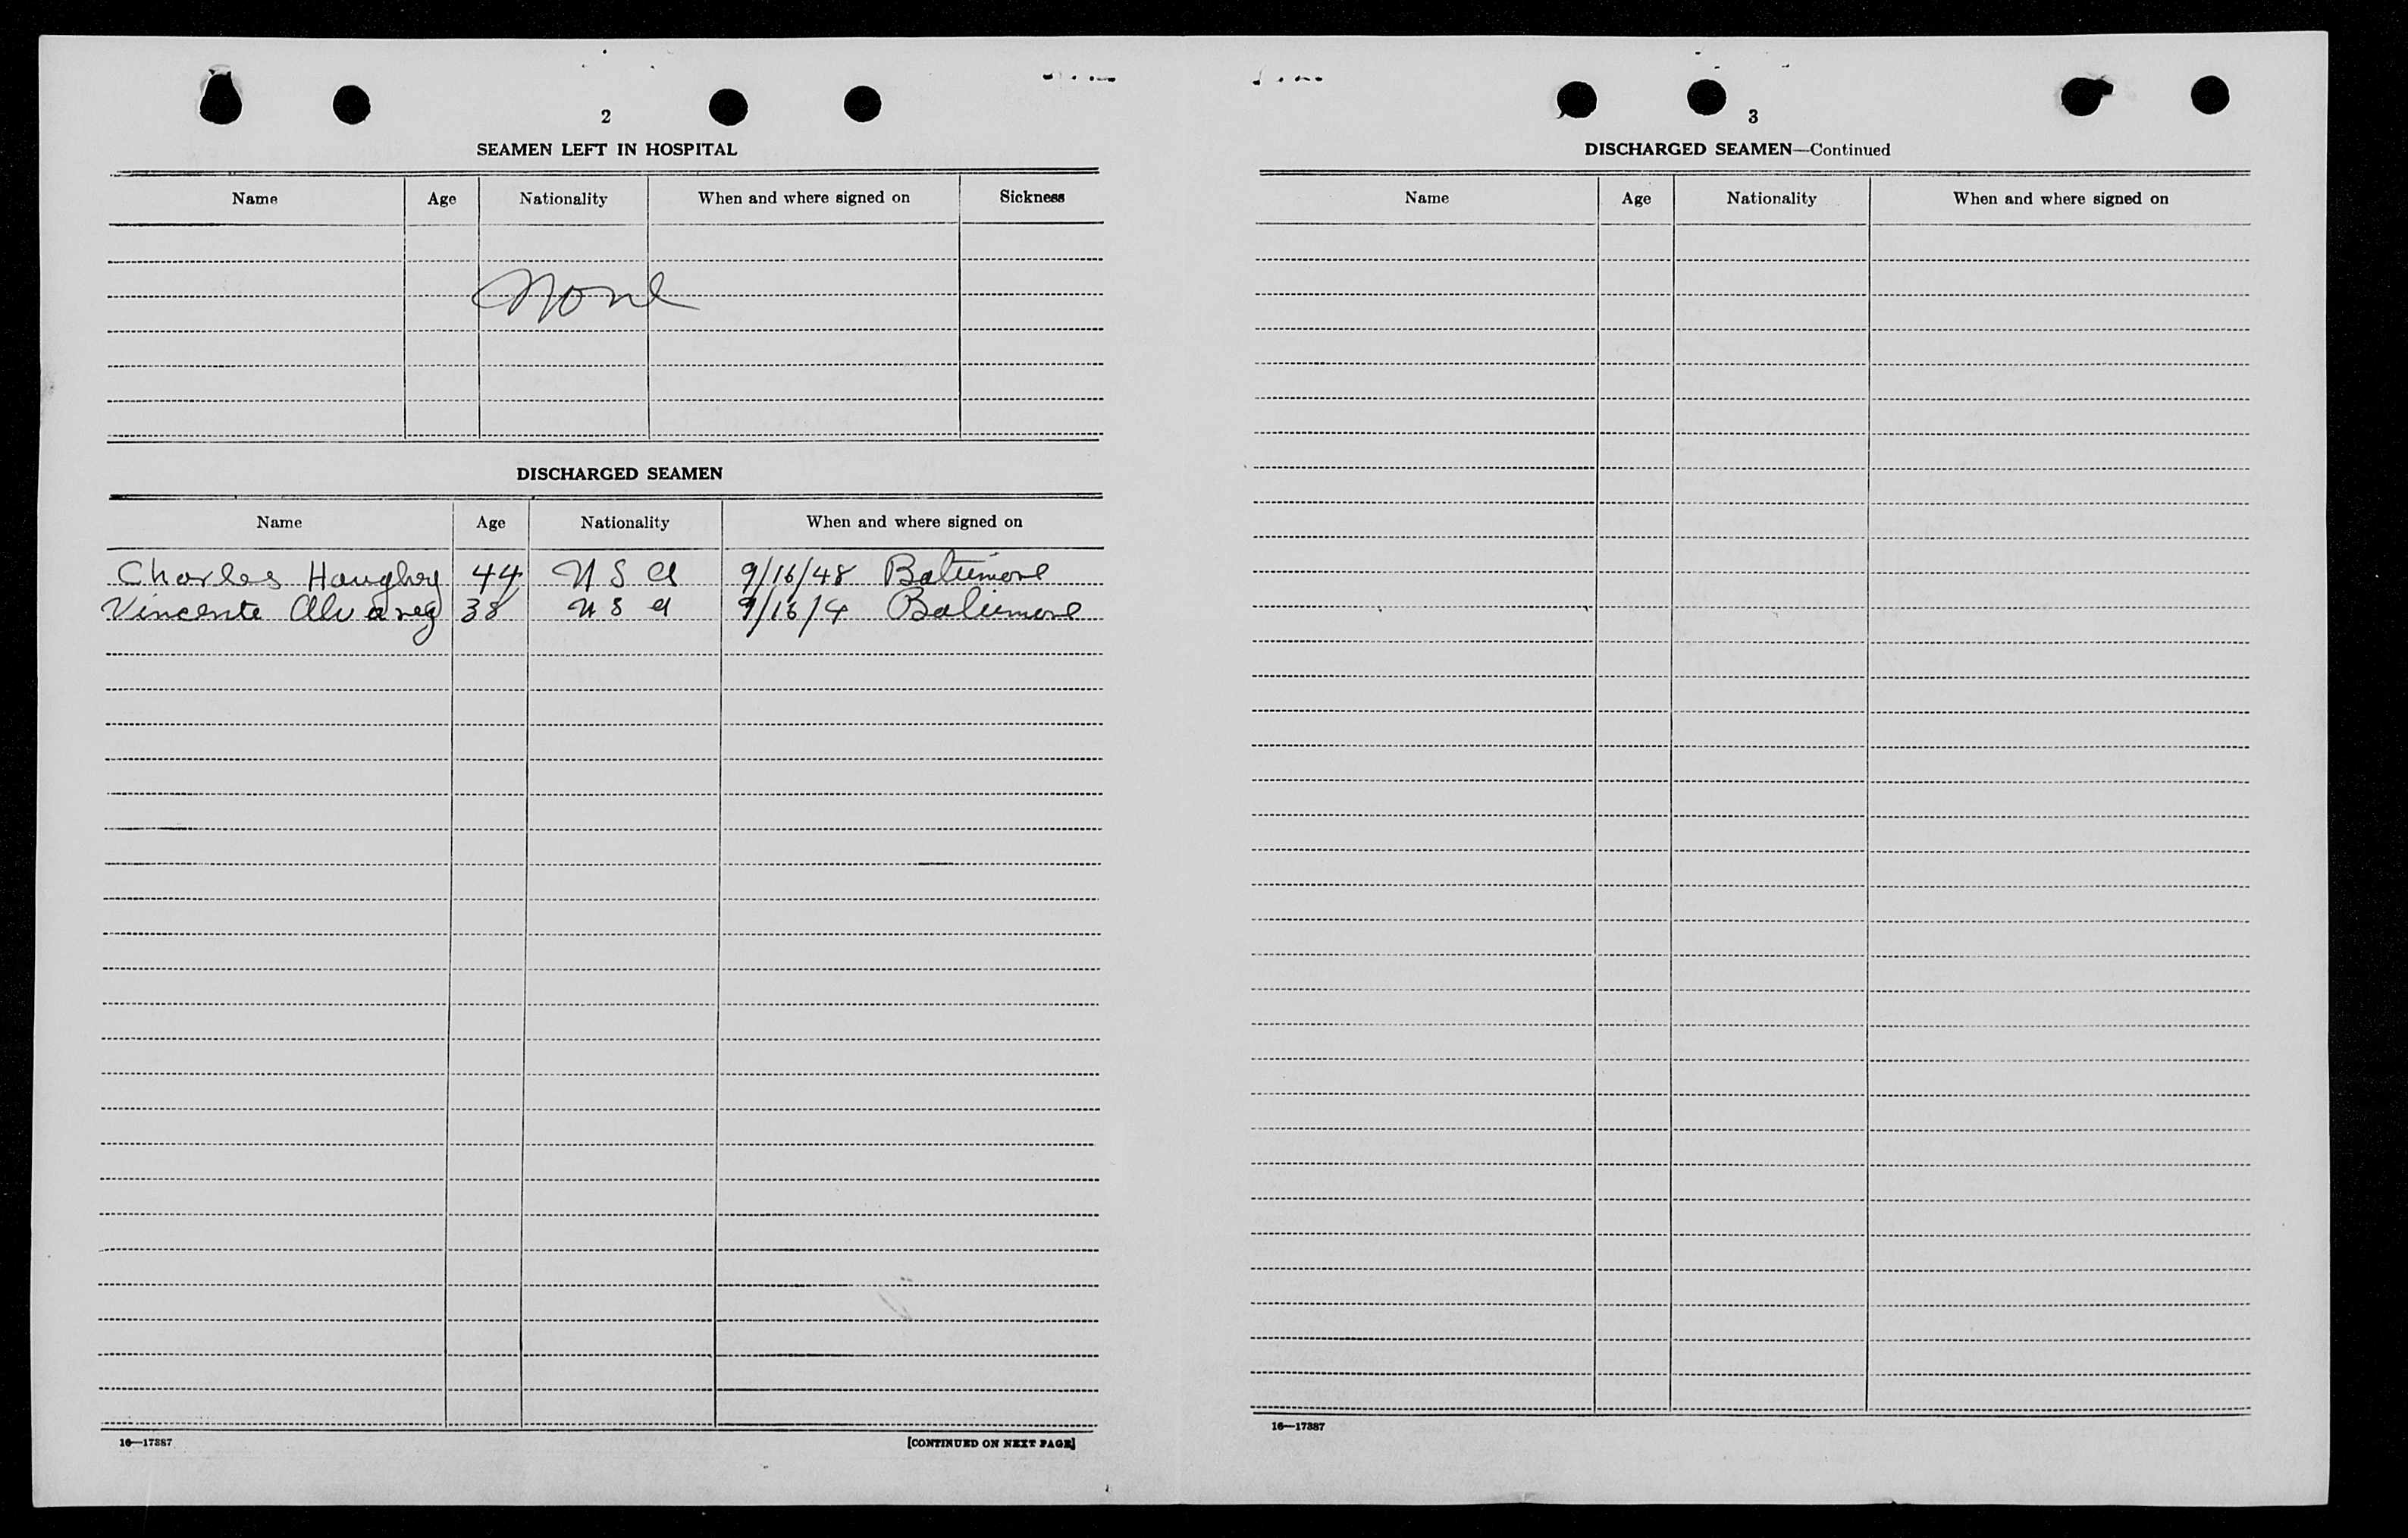 2
SEAMEN LEFT IN HOSPITAL
Name Age Nationality When and where signed on Sickness
None
DISCHARGED SEAMEN
Name Age Nationality When and where signed on
Charles Haughey 44 U S A 9/16/48 Baltimore
Vincente Alvarez 38 U S A 9/16/4 Baltimore
16—17387
[CONTINUED ON NEXT PAGE]
3
DISCHARGED SEAMEN—Continued
Name Age Nationality When and where signed on
16—17387